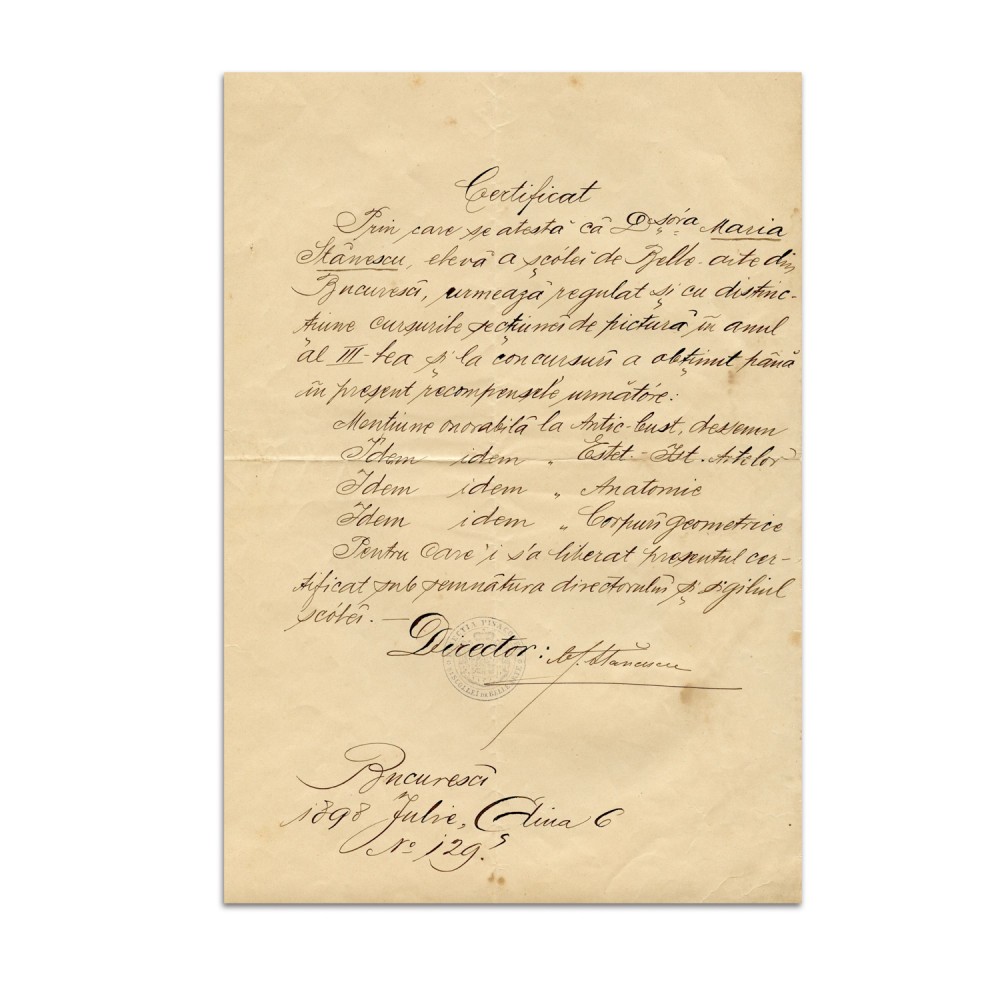 Certificat
Prin care se atestă că D-șóra Maria
Stănescu, elevă a șcólei de Belle-arte din
Bucurescĭ, urmează regulat și cu distinc-
țiune cursurile secțiuneĭ de pictură în anul
al III-lea și la concursurĭ a obținut până
în present recompensele următóre:
Mențiune onorabilă la Antic-bust, dessemn
Idem idem „ Estet.-Ist. Artelor
Idem idem „ Anatomie
Idem idem „ Corpurĭ geometrice
Pentru care 'i s'a liberat presentul cer-
tificat sub semnătura directoruluĭ și sigiliul
șcóleĭ. —
Director: Stăncescu
Bucurescĭ
1898 Julie, Ḑiua 6
No 129.